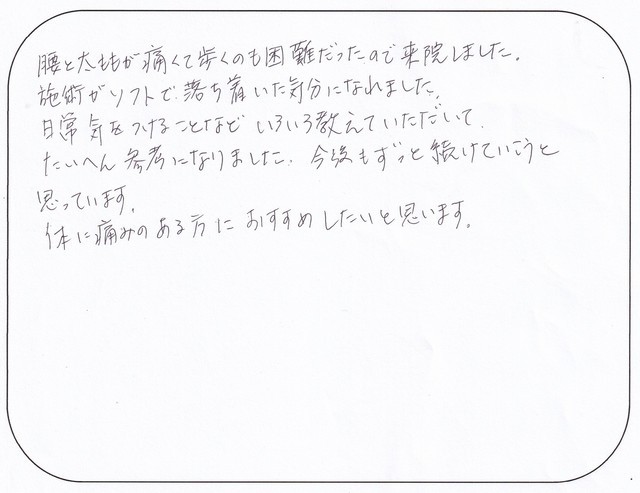 腰と太ももが痛くて歩くのも困難だったので来院しました。
施術がソフトで落ち着いた気分になれました。
日常気をつけることなど いろいろ教えていただいて
たいへん参考になりました。今後もずっと続けていこうと
思っています。
体に痛みのある方に おすすめしたいと思います。